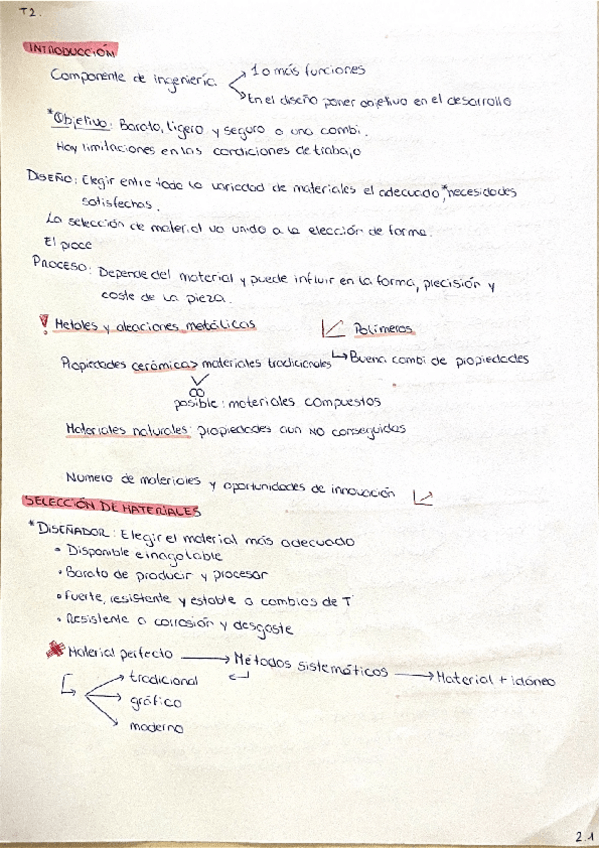 T2.
INTRODUCCIÓN
Componente de ingeniería. 1 o más funciones
En el diseño poner objetivo en el desarrollo
*Objetivo: Barato, ligero y seguro o una combi.
Hay limitaciones en las condiciones de trabajo
DISEÑO: Elegir entre toda la variedad de materiales el adecuado, *necesidades
satisfechas.
La selección de material va unido a la elección de forma.
El poce
PROCESO: Depende del material y puede influir en la forma, precisión y
coste de la pieza.
! Metales y aleaciones metálicas
Polímeros
Propiedades cerámicas > materiales tradicionales → Buena combi de propiedades
posible: materiales compuestos
Materiales naturales: propiedades aun NO conseguidas
Numero de materiales y oportunidades de innovación
SELECCIÓN DE MATERIALES
*DISEÑADOR: Elegir el material más adecuado
• Disponible e inagotable
• Barato de producir y procesar
• Fuerte, resistente y estable a cambios de T
• Resistente a corrosión y desgaste
Material perfecto → Métodos sistemáticos → Material + idóneo
tradicional
gráfico
moderno
2.1